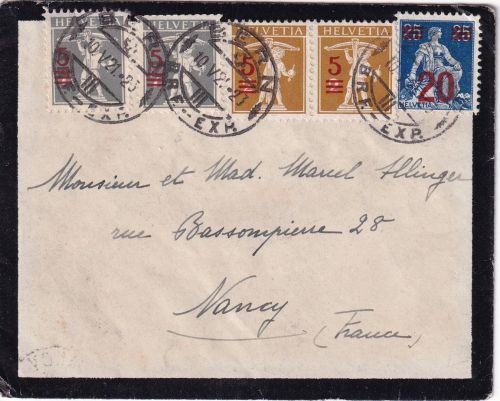 HELVETIA HELVETIA HELVETIA HELVETIA
5 5 5 5 25 25
20
HELVETIA
BERN
10.V.21.-23
III
BRF.-EXP.
Monsieur et Mad. Marcel Illinger
rue Bassompierre 28
Nancy
(France)